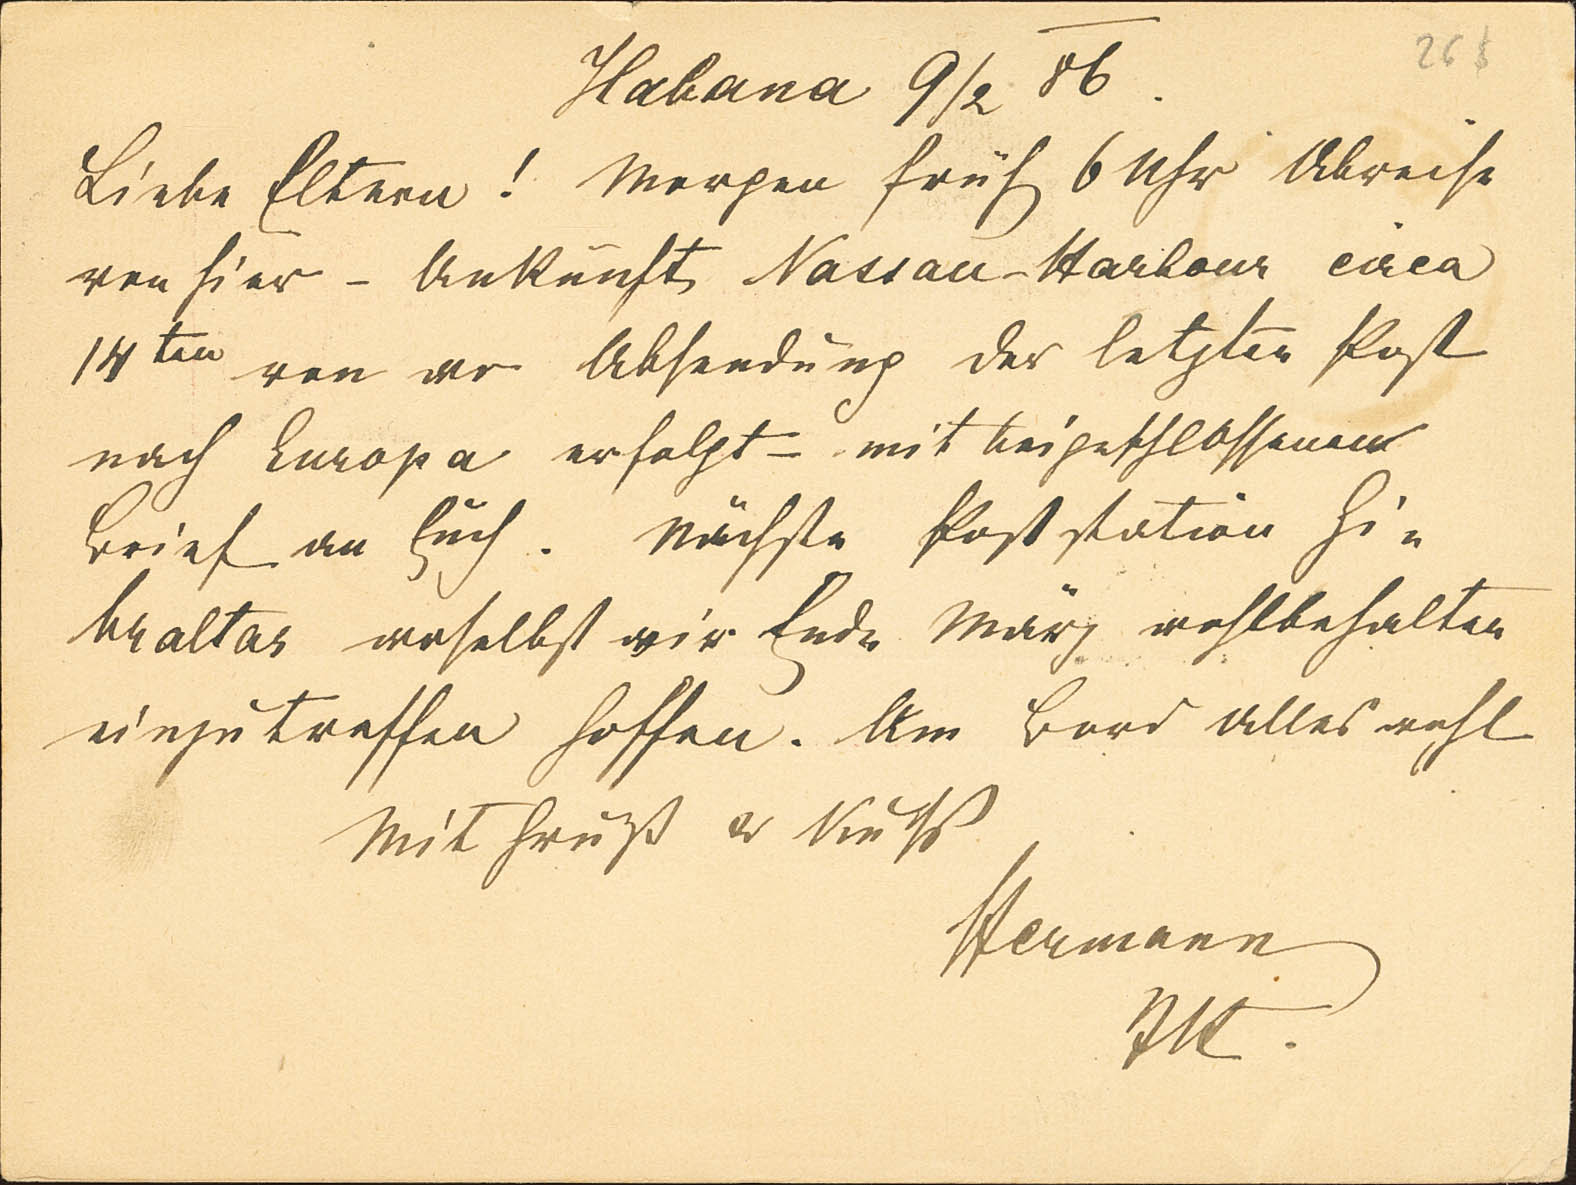 Habana 9/2 86.
Liebe Eltern! Morgen früh 6 Uhr Abreise
von hier – Ankunft Nassau-Harbour circa
14ten von wo Absendung der letzten Post
nach Europa erfolgt – mit beigeschlossenem
Brief an Euch. Nächste Poststation Gi=
braltar woselbst wir Ende März wohlbehalten
einzutreffen hoffen. Am Bord Alles wohl
Mit Gruß & Kuß
Hermann